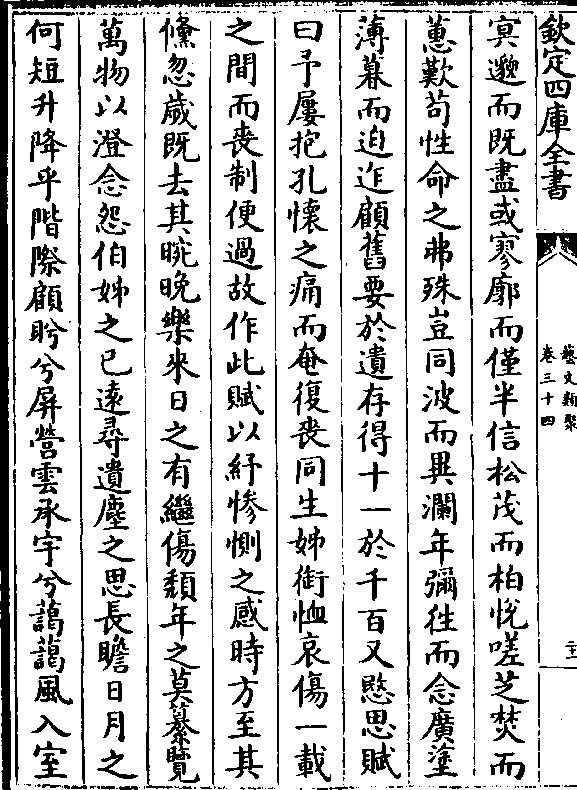 欽定四庫全書
藝文類聚
卷三十四
冥邈而既盡或寥廓而僅半信松茂而柏悅嗟芝焚而
蕙歎苟性命之弗殊豈同波而異瀾年彌往而念廣塗
薄暮而迫迮顧舊要於遺存得十一於千百又愍思賦
曰予屢抱孔懷之痛而奄復喪同生姊銜恤哀傷一載
之間而喪制便過故作此賦以紓慘惻之感時方至其
儵忽歲既去其晼晚樂來日之有繼傷頽年之莫纂覽
萬物以澄念怨伯姊之已遠尋遺塵之思長瞻日月之
何短升降乎階際顧盼兮屏營雲承宇兮藹藹風入室